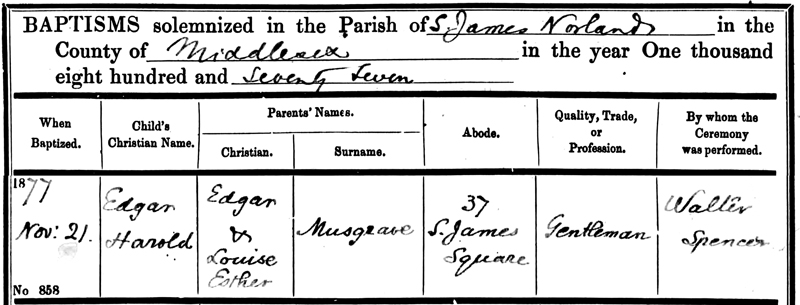 BAPTISMS solemnized in the Parish of S. James Norlands in the
County of Middlesex in the year One thousand
eight hundred and Seventy Seven
When Baptized.
Child's Christian Name.
Parents' Names.
Christian.
Surname.
Abode.
Quality, Trade, or Profession.
By whom the Ceremony was performed.
1877
Nov: 21.
No 858
Edgar
Harold
Edgar
&
Louise
Esther
Musgrave
37
S. James
Square
Gentleman
Walter
Spencer